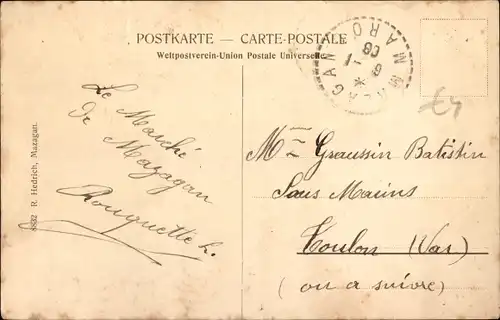 POSTKARTE — CARTE-POSTALE
Weltpostverein-Union Postale Universelle
MAZAGAN MAROC
£4
Le Marché
de Mazagan
Rouquette h.
8832 R. Hedrich, Mazagan.
Mme Graussin Batistin
Sous Marins
Toulon (Var)
(ou a suivre)